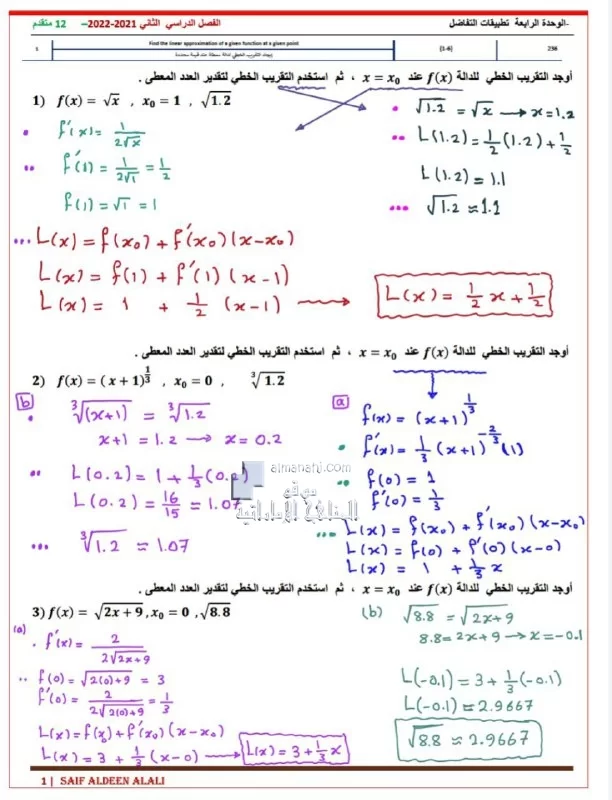 -الوحدة الرابعة تطبيقات التفاضل
الفصل الدراسي الثاني 2021-2022 – 12 متقدم
1
Find the linear approximation of a given function at a given point
(1-6)
236
أوجد التقريب الخطي للدالة f(x) عند x = x₀ ، ثم استخدم التقريب الخطي لتقدير العدد المعطى .
1) f(x) = √x , x₀ = 1 , √1.2
f'(x) = 1/(2√x)
f'(1) = 1/(2√1) = 1/2
f(1) = √1 = 1
√1.2 = √x → x = 1.2
L(1.2) = 1/2 (1.2) + 1/2
L(1.2) = 1.1
√1.2 ≈ 1.1
L(x) = f(x₀) + f'(x₀)(x-x₀)
L(x) = f(1) + f'(1)(x-1)
L(x) = 1 + 1/2 (x-1) → L(x) = 1/2 x + 1/2
أوجد التقريب الخطي للدالة f(x) عند x = x₀ ، ثم استخدم التقريب الخطي لتقدير العدد المعطى .
2) f(x) = (x + 1)^(1/3) , x₀ = 0 , ∛1.2
b
∛(x+1) = ∛1.2
x+1 = 1.2 → x = 0.2
L(0.2) = 1 + 1/3 (0.2)
L(0.2) = 16/15 = 1.07
∛1.2 ≈ 1.07
a
f(x) = (x+1)^(1/3)
f'(x) = 1/3 (x+1)^(-2/3) (1)
f(0) = 1
f'(0) = 1/3
L(x) = f(x₀) + f'(x₀)(x-x₀)
L(x) = f(0) + f'(0)(x-0)
L(x) = 1 + 1/3 x
almanahj.com
موقع
المناهج الإماراتية
أوجد التقريب الخطي للدالة f(x) عند x = x₀ ، ثم استخدم التقريب الخطي لتقدير العدد المعطى .
3) f(x) = √2x + 9 , x₀ = 0 , √8.8
(a)
f'(x) = 2/(2√2x+9)
f(0) = √2(0)+9 = 3
f'(0) = 2/(2√2(0)+9) = 1/3
L(x) = f(x₀) + f'(x₀)(x-x₀)
L(x) = 3 + 1/3 (x-0) → L(x) = 3 + 1/3 x
(b)
√8.8 = √2x+9
8.8 = 2x+9 → x = -0.1
L(-0.1) = 3 + 1/3 (-0.1)
L(-0.1) = 2.9667
√8.8 ≈ 2.9667
1 | SAIF ALDEEN ALALI